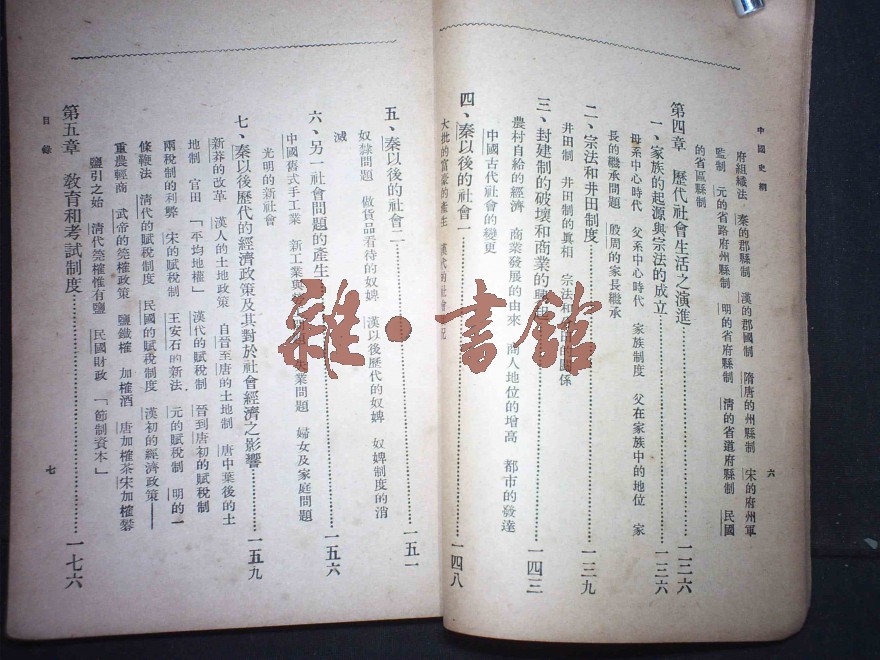 中國史綱
六
府組織法 秦的郡縣制 漢的郡國制 隋唐的州縣制 宋的府州軍
監制 元的省路府州縣制 明的省府縣制 清的省道府縣制 民國
的省區縣制
第四章 歷代社會生活之演進……一三六
一、家族的起源與宗法的成立……一三六
母系中心時代 父系中心時代 家族制度 父在家族中的地位 家
長的繼承問題 殷周的家長繼承
二、宗法和井田制度……一三九
井田制 井田制的真相 宗法和井田的關係
三、封建制的破壞和商業的興……一四三
農村自給的經濟 商業發展的由來 商人地位的增高 都市的發達
中國古代社會的變更
四、秦以後的社會一……一四八
大批的富豪的產生 漢代的社會
五、秦以後的社會二……一五一
奴隸問題 做貨品看待的奴婢 漢以後歷代的奴婢 奴婢制度的消
滅
六、另一社會問題的產生……一五六
中國舊式手工業 新工業與 問題 失業問題 婦女及家庭問題
光明的新社會
七、秦以後歷代的經濟政策及其對於社會經濟之影響……一五九
新莽的改革 漢人的土地政策 自晉至唐的土地制 唐中葉後的土
地制 官田 「平均地權」 漢代的賦稅制 晉到唐初的賦稅制
兩稅制的利弊 宋的賦稅制 王安石的新法 元的賦稅制 明的一
條鞭法 清代的賦稅制度 民國的賦稅制度 漢初的經濟政策——
重農輕商 武帝的筦榷政策 鹽鐵榷 加榷酒 唐加榷茶宋加榷礬
鹽引之始 清代筦榷惟有鹽 民國財政 「節制資本」
第五章 教育和考試制度……一七六
目錄
七
雜·書館